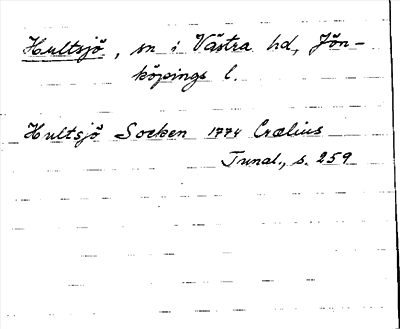 Hultsjö, sn i Västra hd, Jön-
köpings l.
Hultsjö Socken 1774 Crælius
Tunal., s. 259